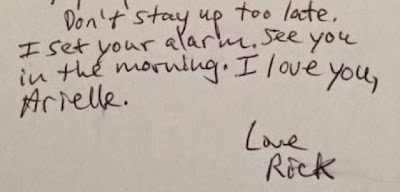 Don't stay up too late.
I set your alarm. See you
in the morning. I love you,
Arielle.
Love
Rick